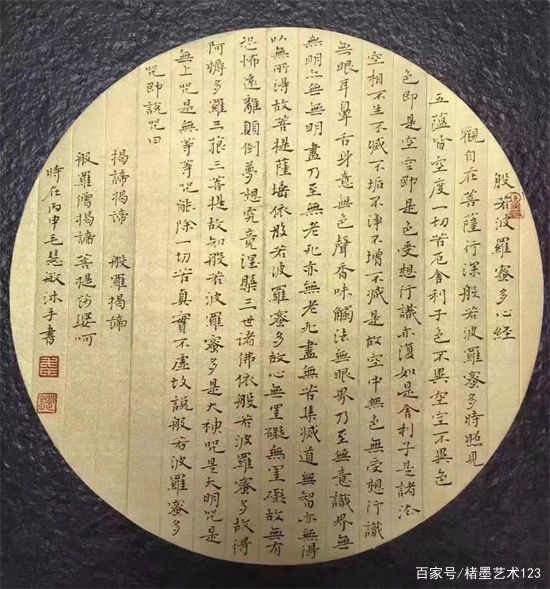 般若波羅蜜多心経
觀自在菩薩行深般若波羅蜜多時照見
五蘊皆空度一切苦厄舍利子色不異空空不異色
色即是空空即是色受想行識亦復如是舍利子是諸法
空相不生不滅不垢不淨不增不減是故空中無色無受想行識
無眼耳鼻舌身意無色聲香味觸法無眼界乃至無意識界無
無明亦無無明盡乃至無老死亦無老死盡無苦集滅道無智亦無得
以無所得故菩提薩埵依般若波羅蜜多故心無罣礙無罣礙故無有
恐怖遠離顛倒夢想究竟涅槃三世諸佛依般若波羅蜜多故得
阿耨多羅三藐三菩提故知般若波羅蜜多是大神咒是大明咒是
無上咒是無等等咒能除一切苦真實不虛故說般若波羅蜜多
咒即說咒曰
揭諦揭諦 般羅揭諦
般羅僧揭諦菩提莎婆呵
時在丙申毛慧敏沐手書
百家号/楮墨艺术123